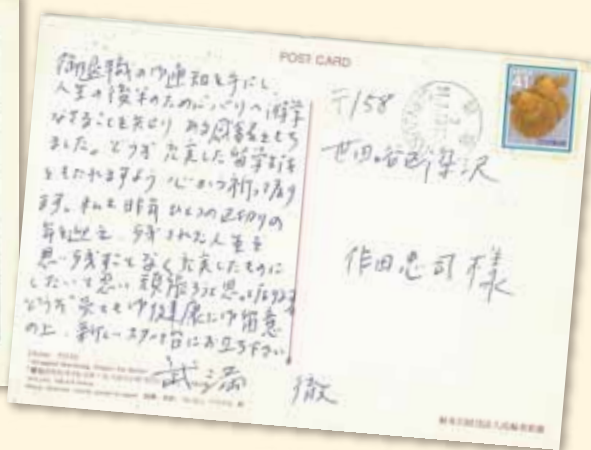 POST CARD
41
〒158
世田谷区深沢
作田忠司様
御退職の御通知を手にし、
人生の後半のためにパリへ遊学
なさることを知り ある感慨をもち
ました。どうぞ 充実した留学生活
をもたれますよう 心から祈って居り
ます。私も昨年 ひとつの区切りの
年を迎え、残された人生を
思い残すことなく 充実したものに
したいと思い 頑張ろうと思って居ります
どうぞ 呉々も御健康に御留意
の上、新しいスタート台にお立ち下さい
武満 徹